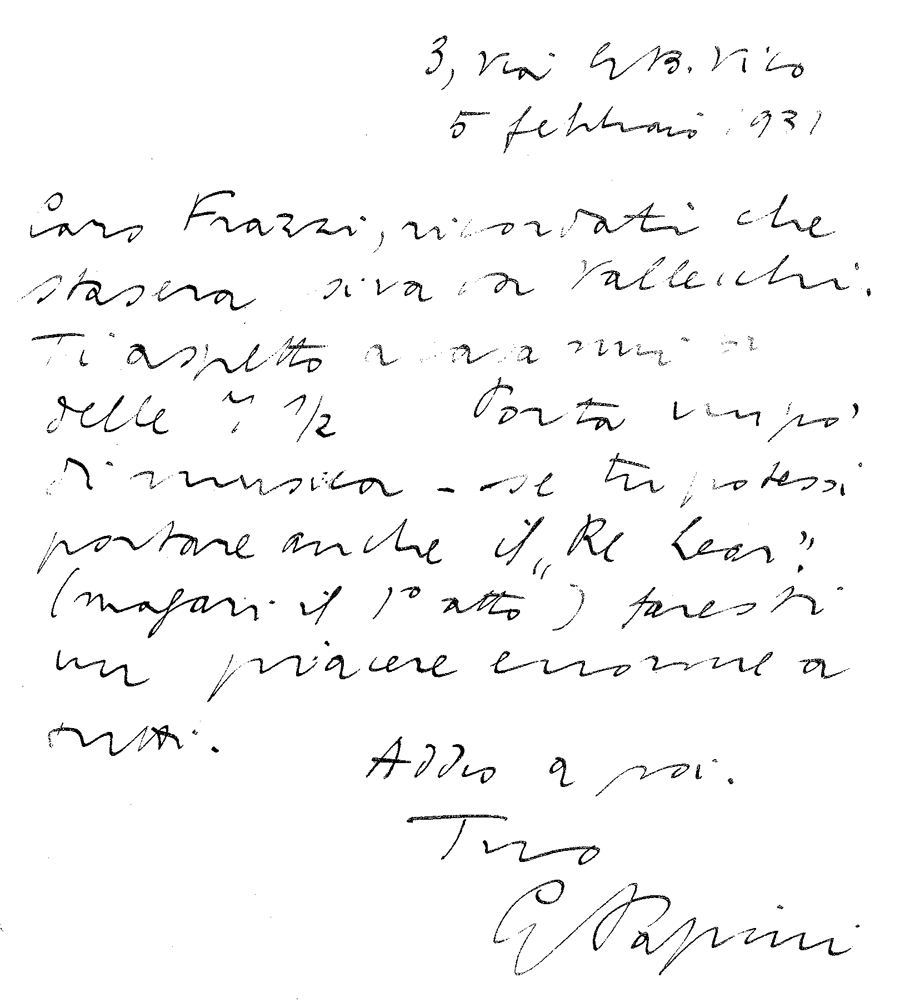 3, Via G.B. Vico
5 febbraio 1931
Caro Frazzi, ricordati che
stasera si va da Vallecchi.
Ti aspetto a casa mia
delle 7 1/2 Porta un po'
di musica - se tu potessi
portare anche il „Re Lear”
(magari il 1º atto) faresti
un piacere enorme a
tutti.
Addio a poi.
Tuo
G Papini